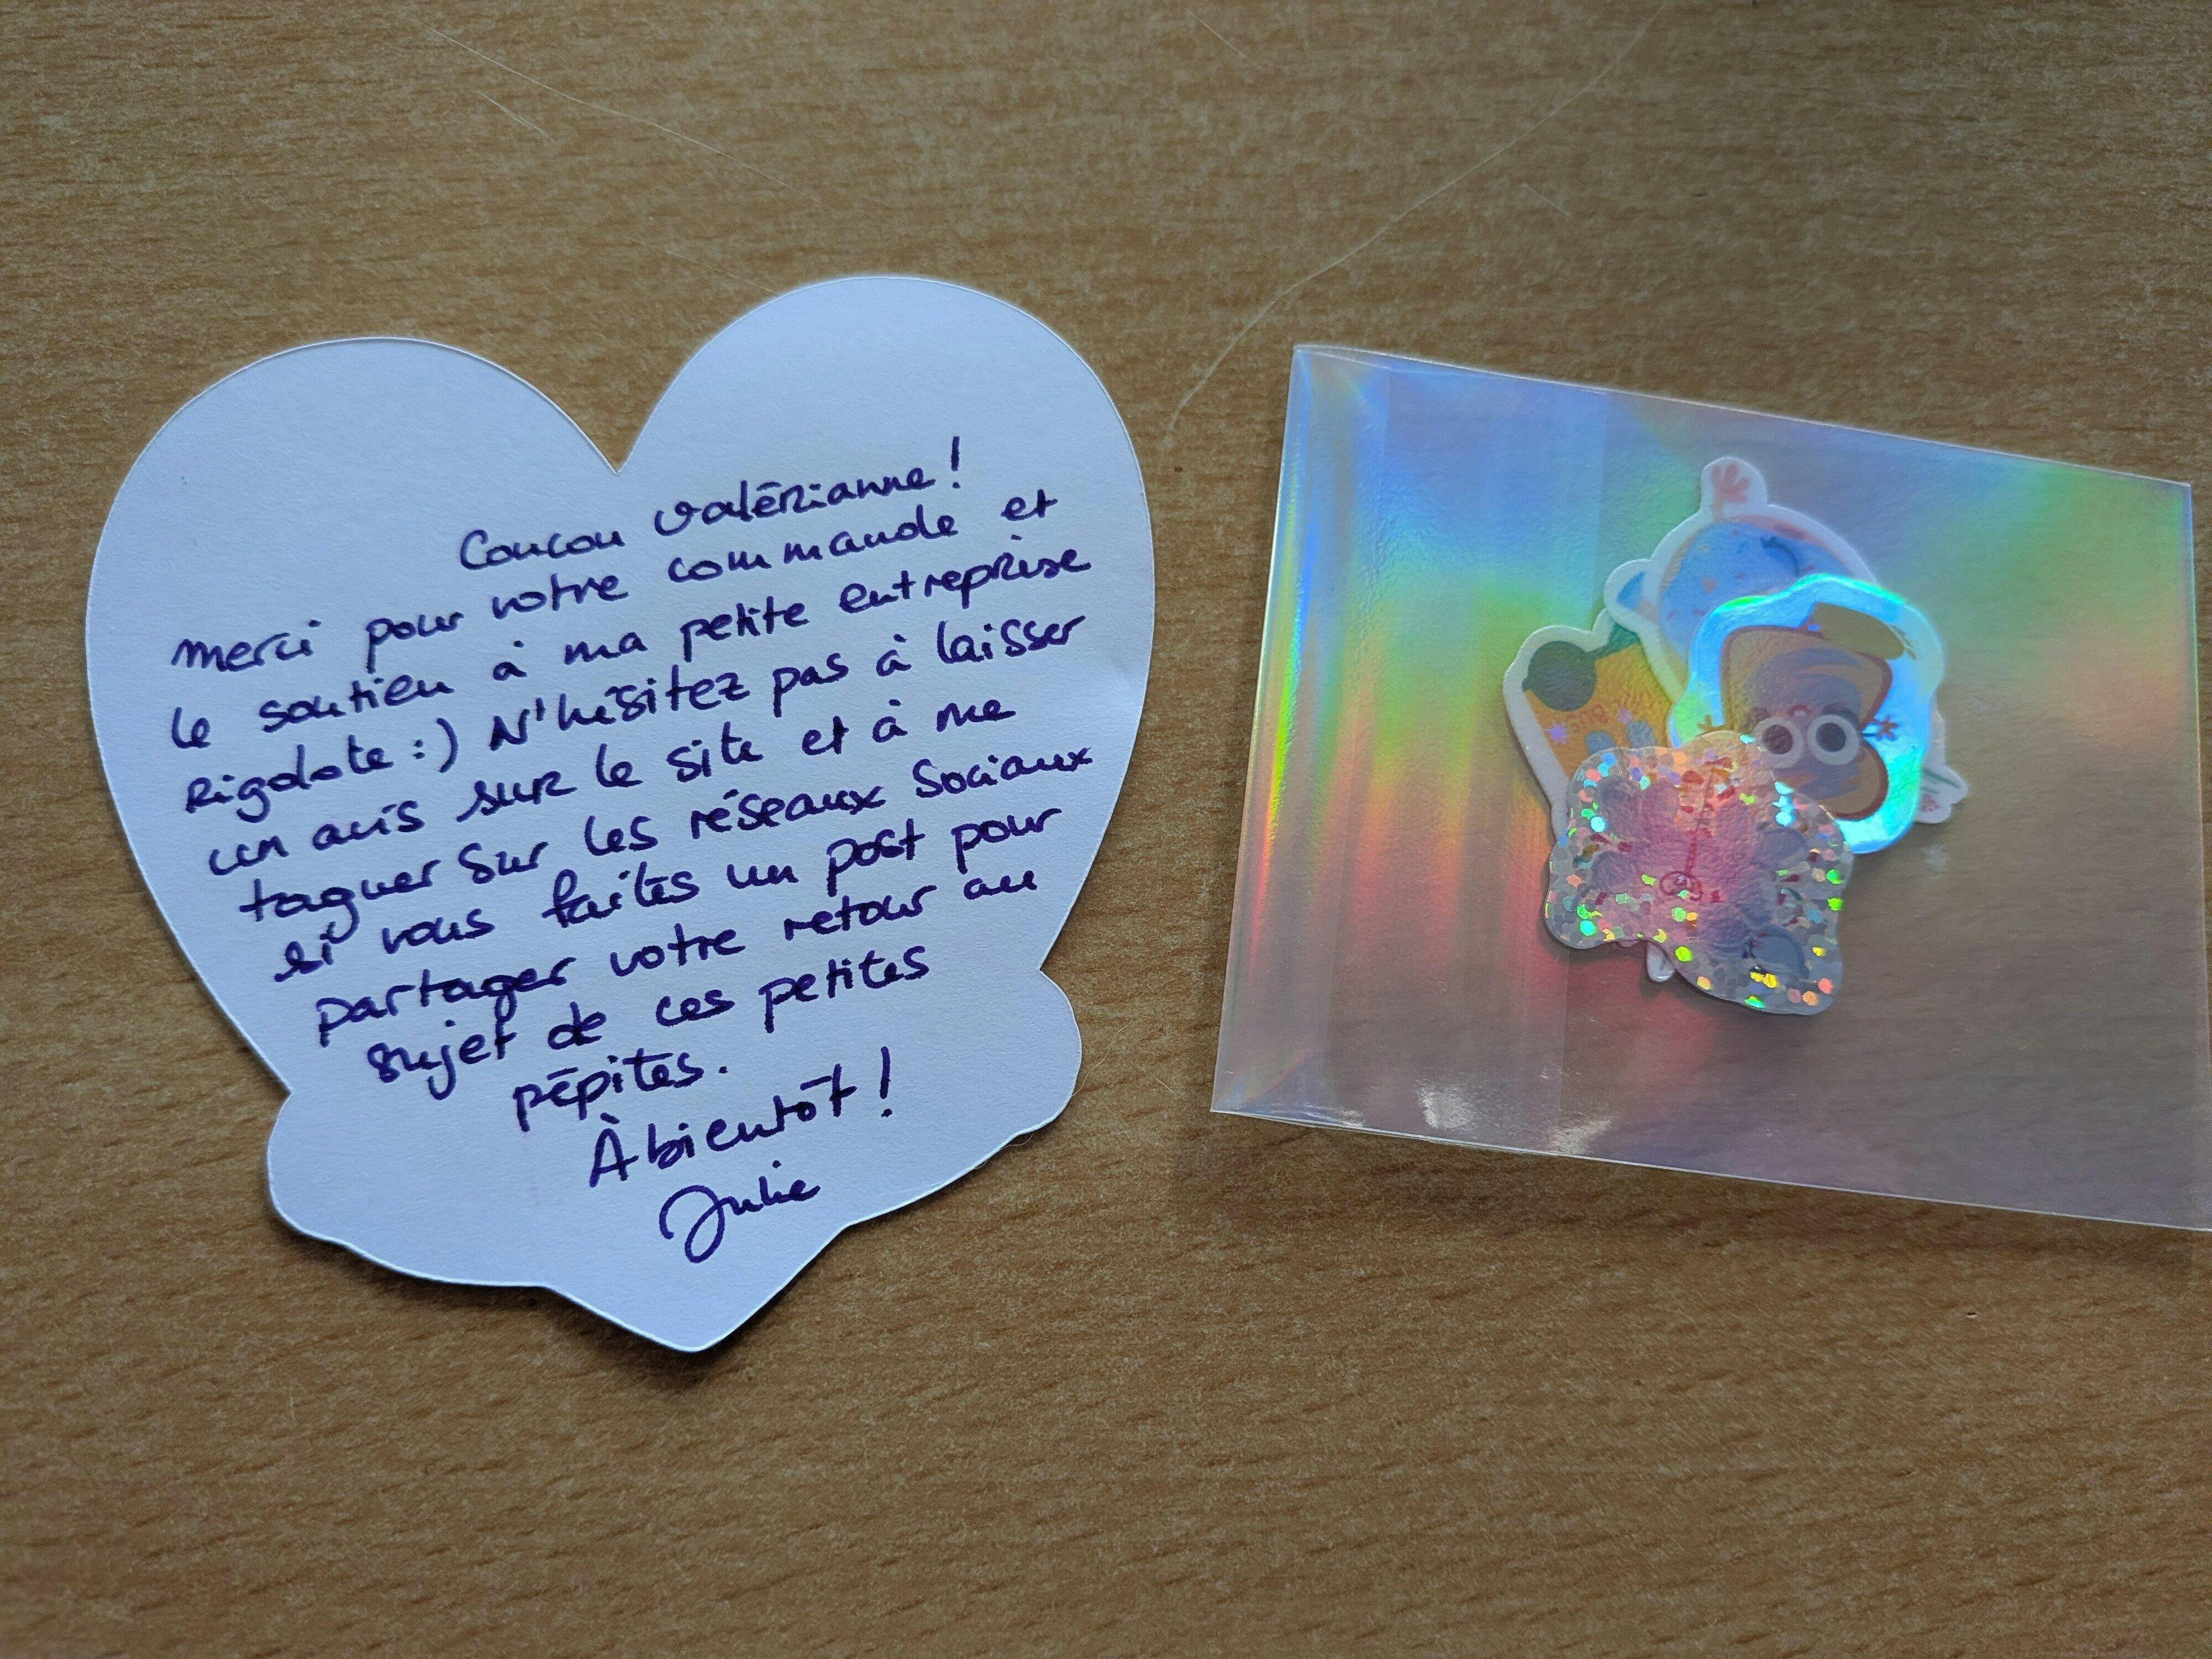 Coucou Valérianne !
merci pour votre commande et
le soutien à ma petite entreprise
rigolote :) N'hésitez pas à laisser
un avis sur le site et à me
taguer sur les réseaux sociaux
si vous faites un post pour
partager votre retour au
sujet de ces petites
pépites.
À bientôt !
Julie